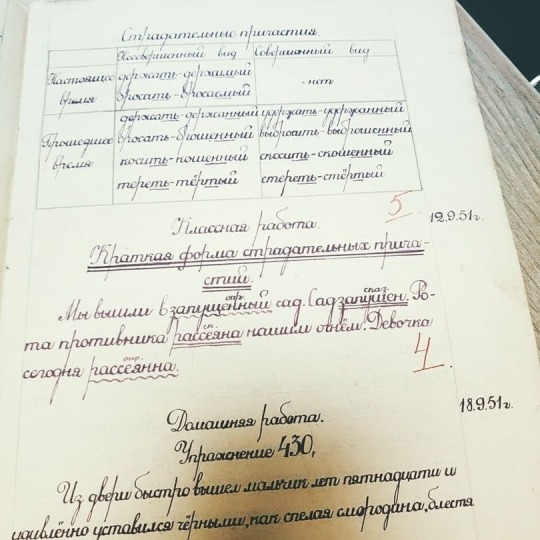 Страдательные причастия.
Несовершенный вид Совершонный вид
Настоящее время держать-держимый - нет
бросать-бросаемый
Прошедшее время держать-держанный удержать-удержанный
бросать-брошенный выбросить-выброшенный
косить-кошенный скосить-скошенный
тереть-тёртый стереть-стёртый
5
Классная работа. 12.9.51г.
Краткая форма страдательных прича-
стий.
опр. сказ.
Мы вышли в запущенный сад. Сад запущен. Ро-
ск.
та противника рассеяна нашим огнём. Девочка
опр.
сегодня рассеянна.
4
Домашняя работа. 18.9.51г.
Упражнение 430,
Из двери быстро вышел мальчик лет пятнадцати и
удивлённо уставился чёрными, как спелая смородина, блестя